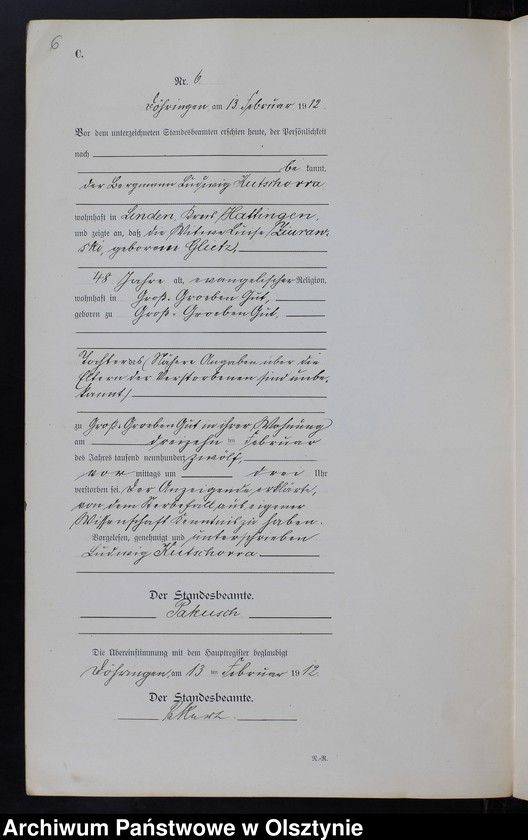 6
C.
Nr. 6.
Döhringen am 13. Februar 1912.
Vor dem unterzeichneten Standesbeamten erschien heute, der Persönlichkeit
nach
be kannt,
der Bergmann Ludwig Kutschorra
wohnhaft in Linden, Kreis Hattingen,
und zeigte an, daß die Witwe Luise Ziuraw-
ski, geborene Glietz,
48 Jahre alt, evangelischer Religion,
wohnhaft in Groß-Groeben Gut,
geboren zu Groß-Groeben Gut,
Tochter des (Nähere Angaben über die
Eltern der Verstorbenen sind unbe-
kannt)
zu Groß-Groeben Gut in ihrer Wohnung
am dreizehn ten Februar
des Jahres tausend neunhundert zwölf,
vor mittags um drei Uhr
verstorben sei. Der Anzeigende erklärte,
von dem Sterbefall aus eigener
Wissenschaft Kenntnis zu haben.
Vorgelesen, genehmigt und unterschrieben
Ludwig Kutschorra
Der Standesbeamte.
Pakusch
Die Übereinstimmung mit dem Hauptregister beglaubigt
Döhringen, am 13 ten Februar 1912.
Der Standesbeamte.
N.-R.
Archiwum Państwowe w Olsztynie